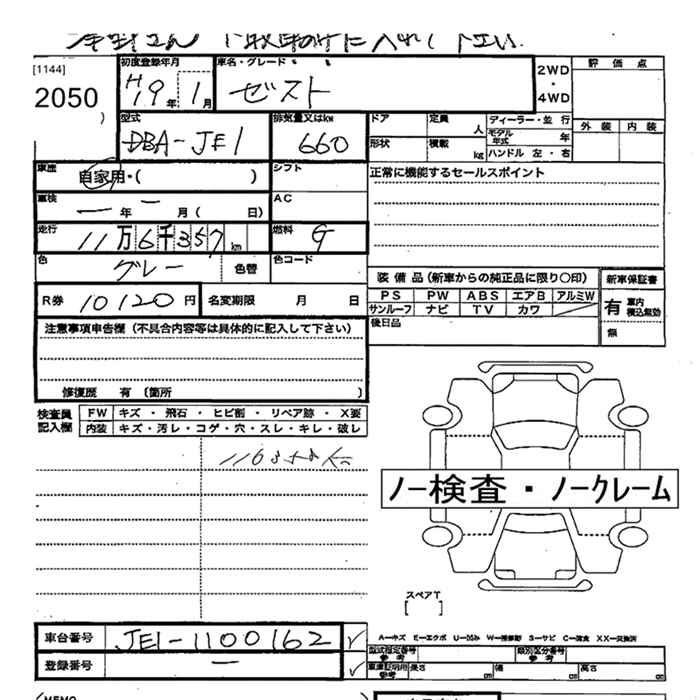 [1144]
2050
初度登録年月
H19年 1月
車名・グレード
ゼスト
2WD
・
4WD
評価点
外装 内装
型式
DBA-JE1
排気量又はkw
660
ドア
定員
人
形状
積載
kg
ディーラー・並行
モデル年式
年
ハンドル 左・右
車歴
自家用・( )
シフト
正常に機能するセールスポイント
車検
ー年 ー月( 日)
AC
走行
11万6千357km
燃料
G
色
グレー
色替
色コード
装備品(新車からの純正品に限り〇印)
新車保証書
PS PW ABS エアB アルミW
サンルーフ ナビ TV カワ
有 車内積込無効
無
後日品
R券 10120円
名変期限 月 日
注意事項申告欄(不具合内容等は具体的に記入して下さい)
修復歴 有(箇所 )
検査員記入欄
FW キズ・飛石・ヒビ割・リペア跡・X要
内装 キズ・汚レ・コゲ・穴・スレ・キレ・破レ
ノー検査・ノークレーム
スペアT
[ ]
車台番号 JE1-1100162
登録番号 ー
A-キズ E-エクボ U-凹み W-補修跡 S-サビ C-腐食 XX-交換済
型式指定番号
参考
類別区分番号
参考
車庫証明用
参考
長さ cm 幅 cm 高さ cm
(MEMO